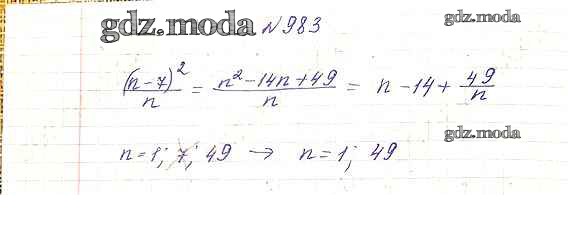 gdz.moda
gdz.moda №983
(n-7)²/n = n²-14n+49/n = n-14+ 49/n
gdz.moda
n=1; 7; 49 → n=1; 49